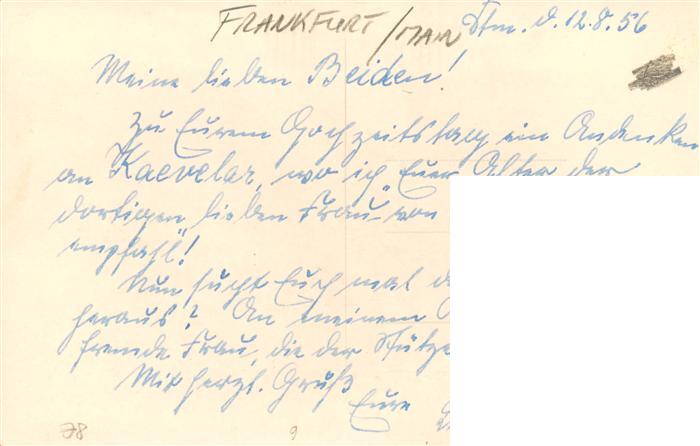 FRANKFURT/MAIN
Dtm. d. 12.8.56
Meine lieben Beiden!
Zu Eurem Hochzeitstag ein Andenken
an Kaevelar, wo ich „Euer Alter der
dortigen lieben Frau von
empfahl"!
Nun sucht Euch mal
heraus? An meinem
fremde Frau, die der Stütze
Mit herzl. Gruß
Eure
78
9